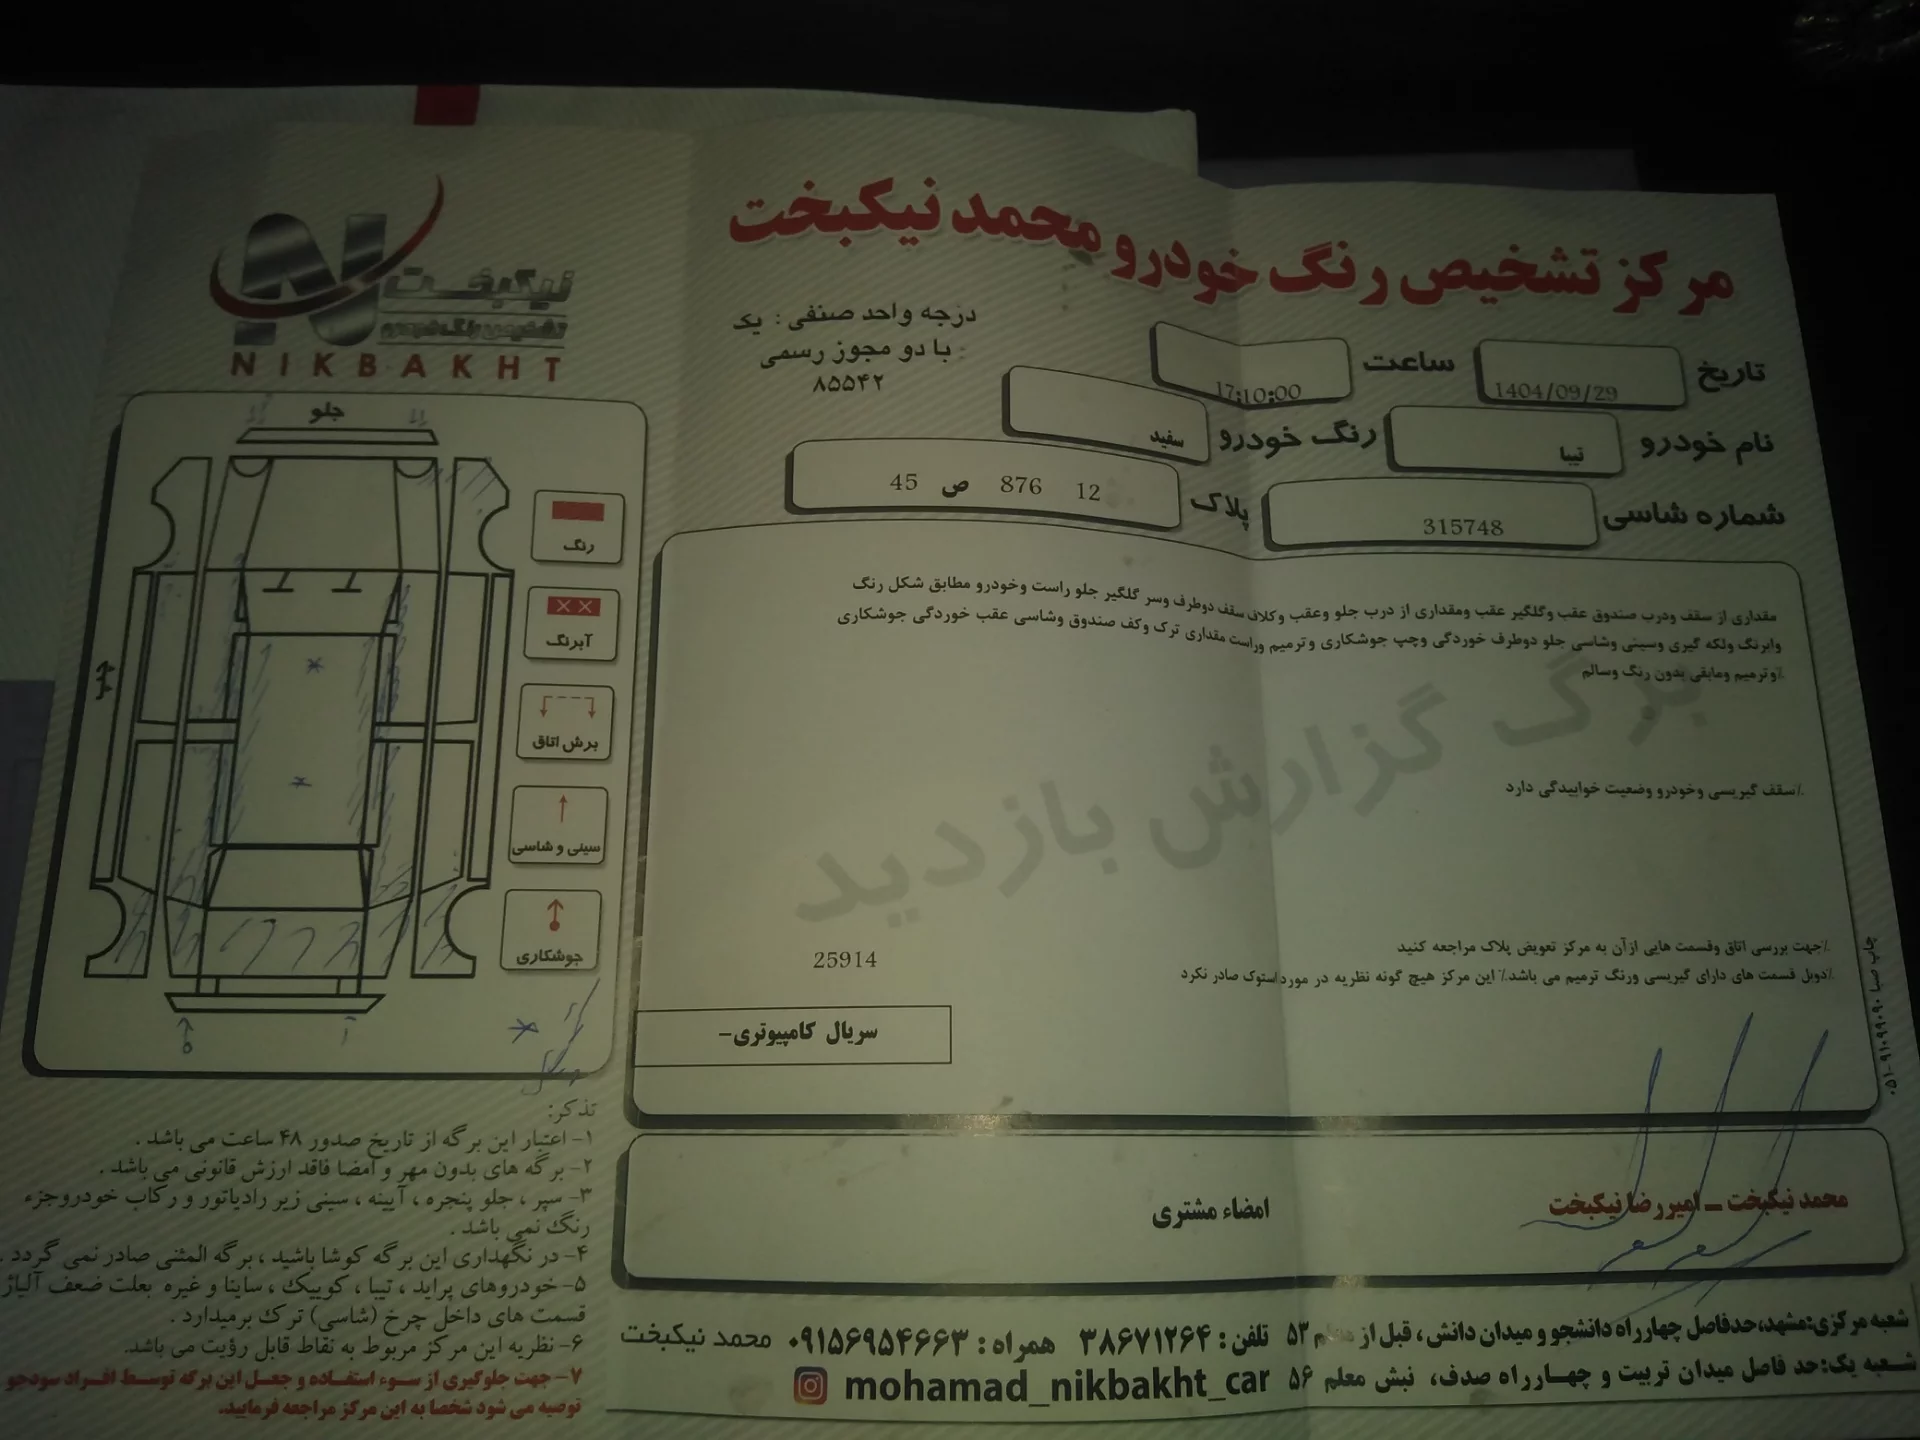 مرکز تشخیص رنگ خودرو محمد نیکبخت
نیکبخت
تشخیص رنگ خودرو
NIKBAKHT
درجه واحد صنفی : یک
با دو مجوز رسمی
۸۵۵۴۲
تاریخ 1404/09/29 ساعت 17:10:00
نام خودرو تیبا رنگ خودرو سفید
شماره شاسی 315748 پلاک 12 876 ص 45
مقداری از سقف ودرب صندوق عقب وگلگیر عقب ومقداری از درب جلو وعقب وکلاف سقف دوطرف وسر گلگیر جلو راست وخودرو مطابق شکل رنگ
وابرنگ ولکه گیری وسینی وشاسی جلو دوطرف خوردگی وچپ جوشکاری وترمیم وراست مقداری ترک وکف صندوق وشاسی عقب خوردگی جوشکاری
٪وترمیم ومابقی بدون رنگ وسالم
٪سقف گیریسی وخودرو وضعیت خوابیدگی دارد
برگ گزارش بازدید
٪جهت بررسی اتاق وقسمت هایی ازآن به مرکز تعویض پلاک مراجعه کنید
٪دوبل قسمت های دارای گیریسی ورنگ ترمیم می باشد.٪ این مرکز هیچ گونه نظریه در مورد استوک صادر نکرد
25914
سریال کامپیوتری-
جلو
چپ
رنگ
آبرنگ
برش اتاق
سینی و شاسی
جوشکاری
تذکر:
۱- اعتبار این برگه از تاریخ صدور ۴۸ ساعت می باشد .
۲- برگه های بدون مهر و امضا فاقد ارزش قانونی می باشد .
۳- سپر ، جلو پنجره ، آیینه ، سینی زیر رادیاتور و رکاب خودروجزء
رنگ نمی باشد .
۴- در نگهداری این برگه کوشا باشید ، برگه المثنی صادر نمی گردد .
۵- خودروهای پراید ، تیبا ، کوییک ، ساینا و غیره بعلت ضعف آلیاژ
قسمت های داخل چرخ (شاسی) ترک برمیدارد .
۶- نظریه این مرکز مربوط به نقاط قابل رؤیت می باشد.
۷- جهت جلوگیری از سوء استفاده و جعل این برگه توسط افراد سودجو
توصیه می شود شخصا به این مرکز مراجعه فرمایید.
محمد نیکبخت – امیررضا نیکبخت
امضاء مشتری
چاپ صبا ۰۵۱-۹۱۰۹۹۰۹۰
شعبه مرکزی:مشهد،حدفاصل چهارراه دانشجو و میدان دانش ، قبل از معلم ۵۳ تلفن : ۳۸۶۷۱۲۶۴ همراه : ۰۹۱۵۶۹۵۴۶۶۳ محمد نیکبخت
شعبه یک:حد فاصل میدان تربیت و چهارراه صدف، نبش معلم ۵۶ mohamad_nikbakht_car